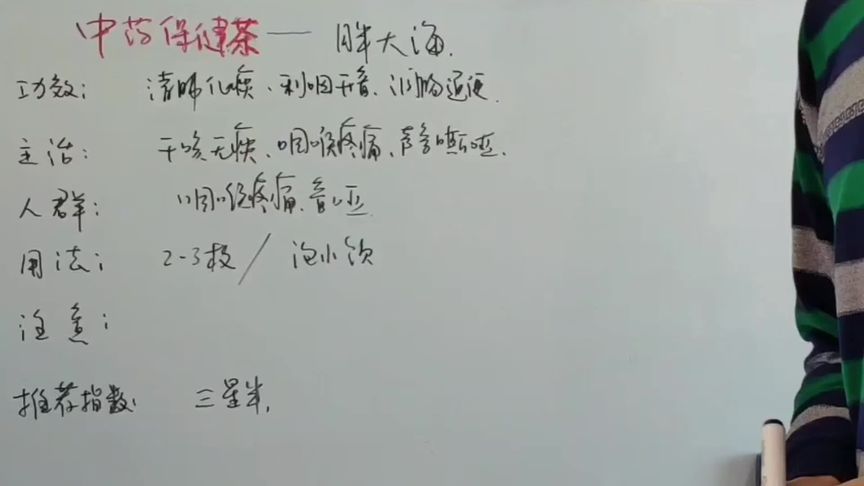 中药保健茶—— 胖大海.
功效： 清肺化痰、利咽开音、润肠通便.
主治： 干咳无痰、咽喉疼痛、声音嘶哑.
人群： 咽喉疼痛、音哑
用法： 2-3枚／ 泡水饮
注意：
推荐指数： 三星半.